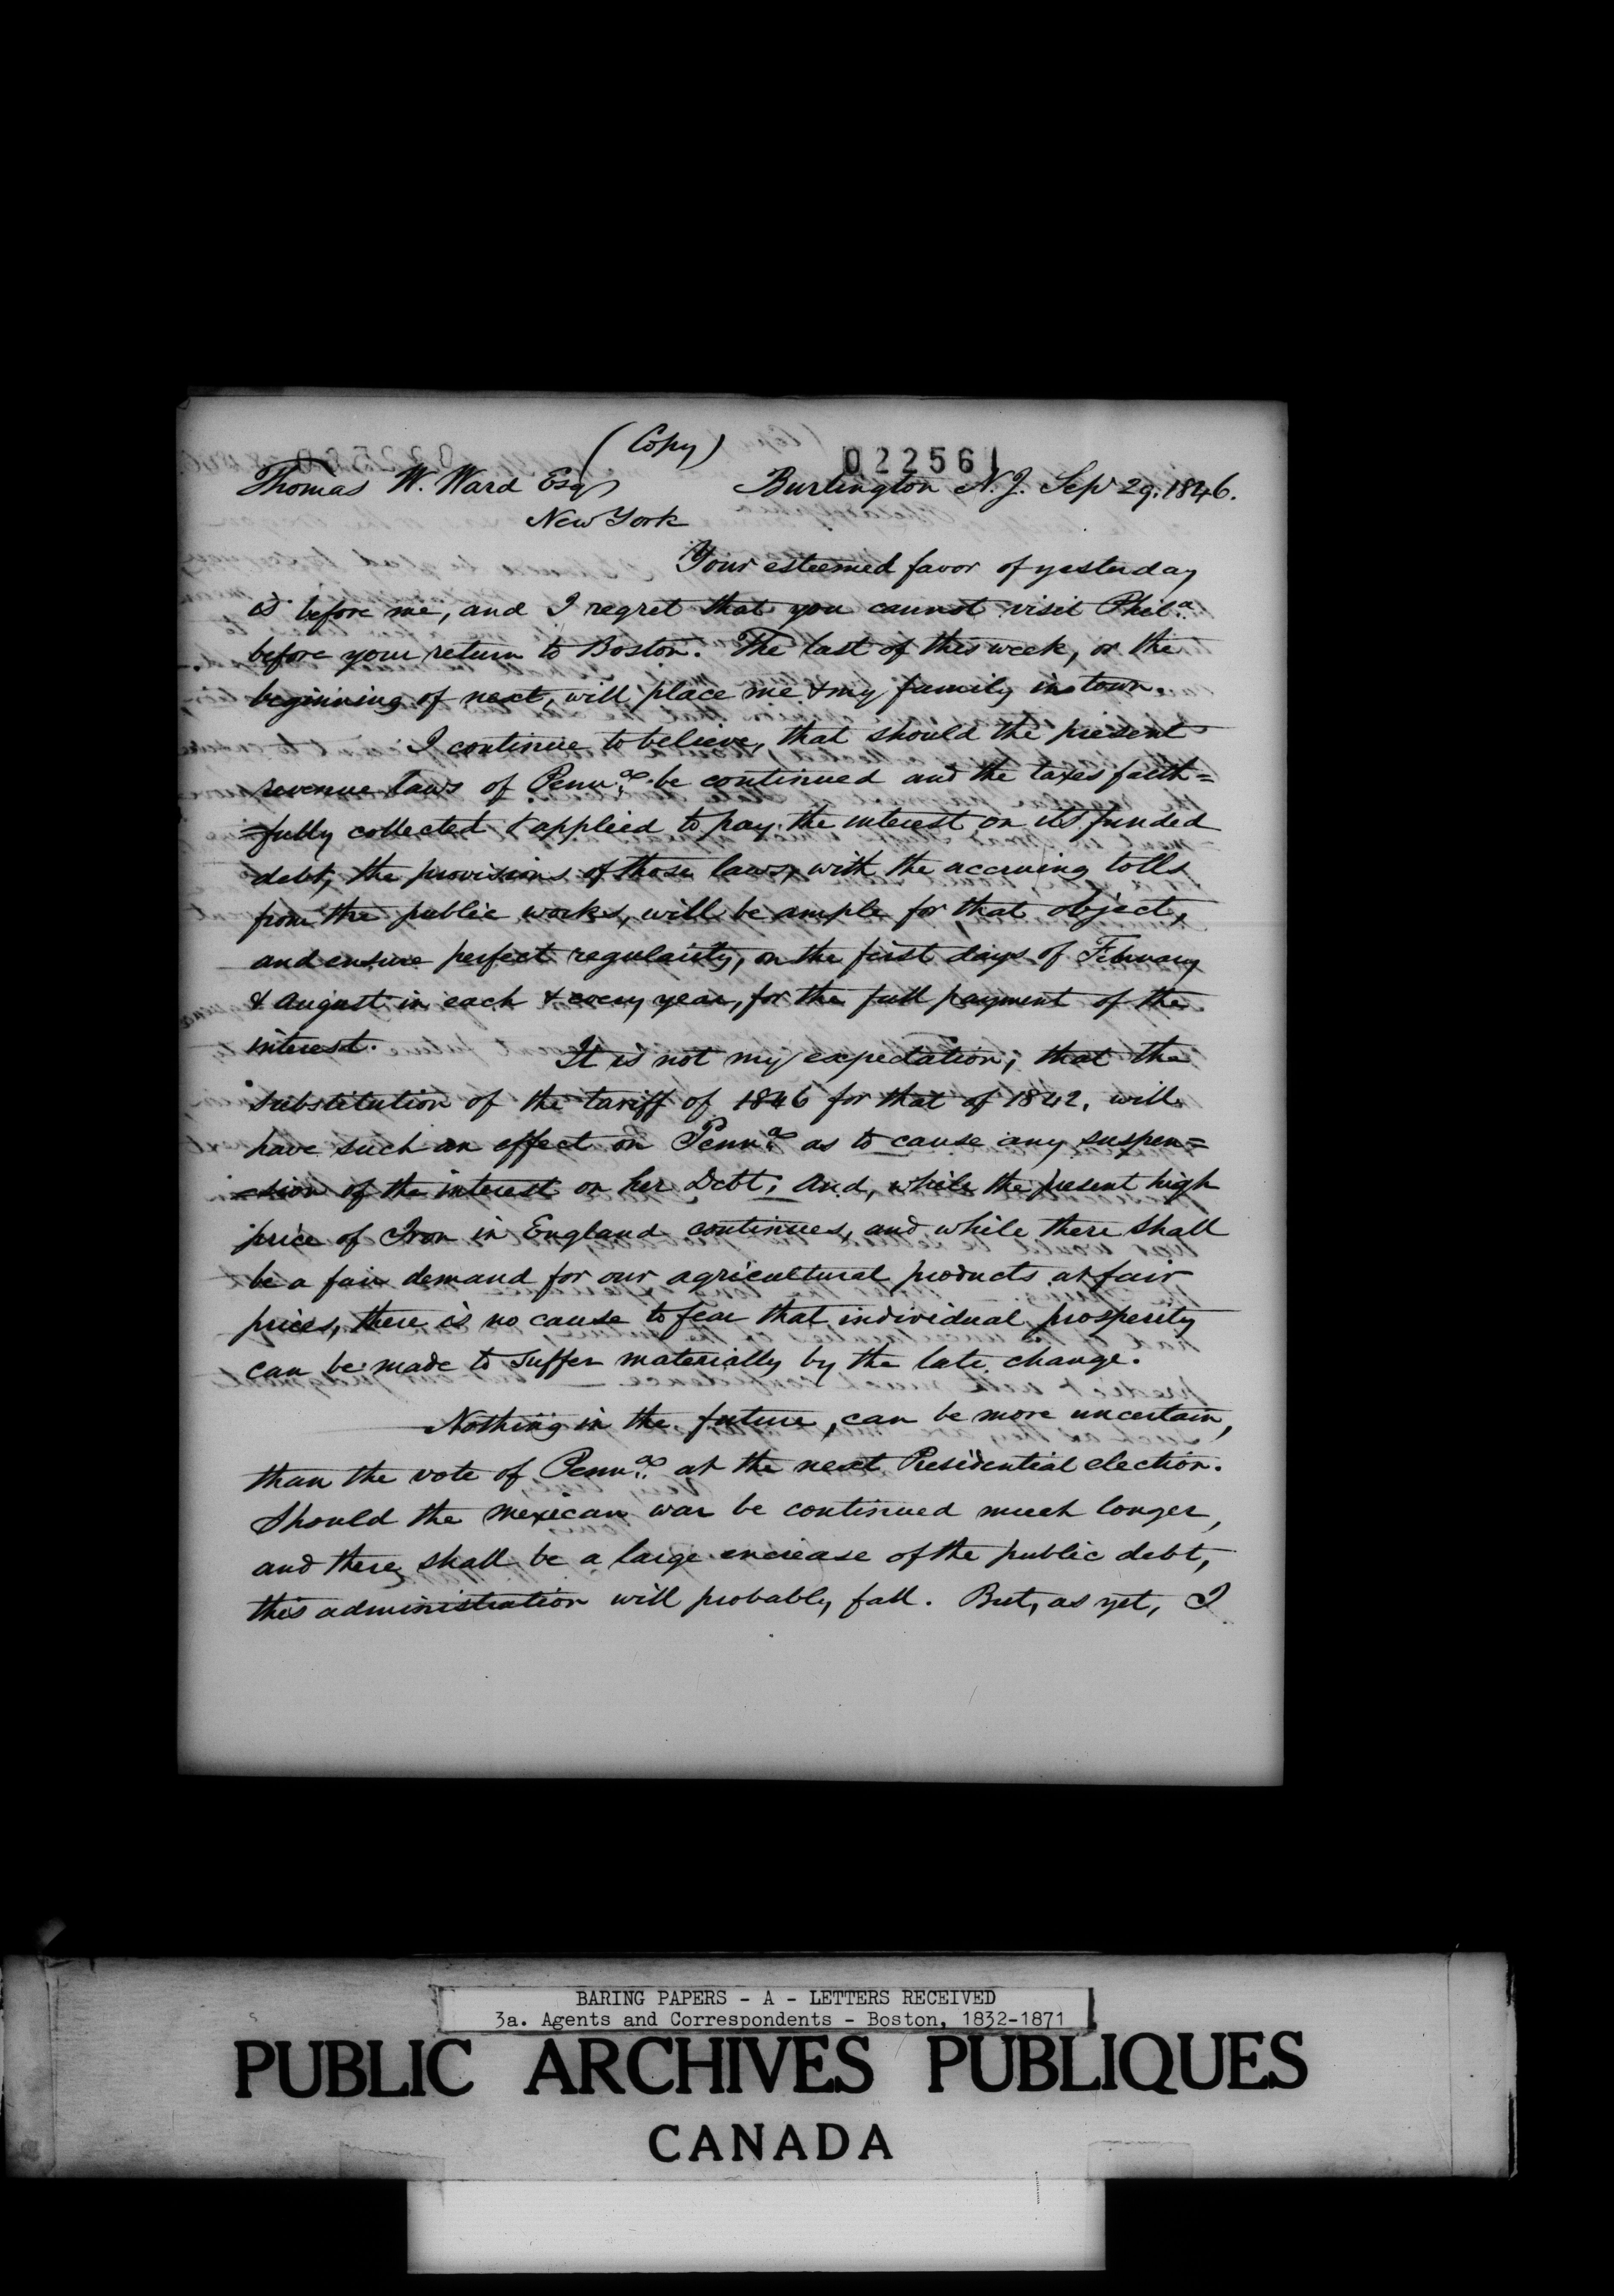 (Copy)
022561
Thomas W. Ward Esq
Burlington N.J. Sep 29. 1846.
New York
Your esteemed favor of yesterday
is before me, and I regret that you cannot visit Phila.
before your return to Boston. The last of this week, or the
beginning of next, will place me & my family in town.
I continue to believe, that should the present
revenue laws of Penna. be continued and the taxes faith=
=fully collected & applied to pay the interest on its funded
debt, the provisions of those laws, with the accruing tolls
from the public works, will be ample for that object,
and ensure perfect regularity, on the first days of February
& August in each & every year, for the full payment of the
interest.
It is not my expectation, that the
substitution of the tariff of 1846 for that of 1842, will
have such an effect on Penna. as to cause any suspen=
=sion of the interest on her Debt; and, while the present high
price of Iron in England continues, and while there shall
be a fair demand for our agricultural products at fair
prices, there is no cause to fear that individual prosperity
can be made to suffer materially by the late change.
Nothing in the future, can be more uncertain,
than the vote of Penna. at the next Presidential election.
Should the Mexican war be continued much longer,
and there shall be a large encrease of the public debt,
this administration will probably fall. But, as yet, I
BARING PAPERS - A - LETTERS RECEIVED
3a. Agents and Correspondents - Boston, 1832-1871
PUBLIC ARCHIVES PUBLIQUES
CANADA